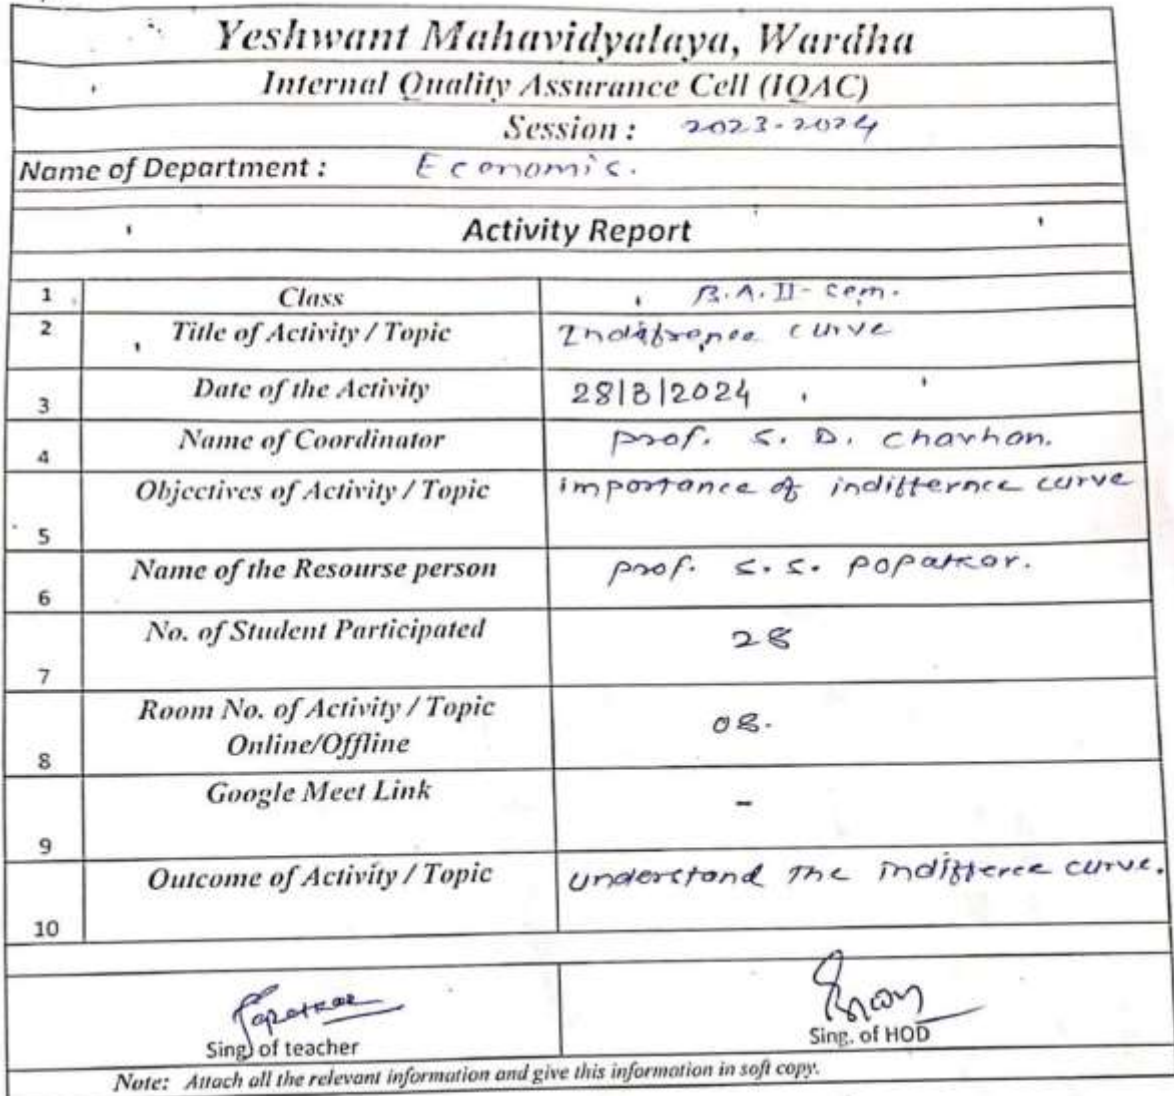 Yeshwant Mahavidyalaya, Wardha
Internal Quality Assurance Cell (IQAC)
Session : 2023-2024
Name of Department : Economic.
Activity Report
1 Class B.A. II - sem.
2 Title of Activity / Topic curve
3 Date of the Activity 28/3/2024
4 Name of Coordinator prof. S. D. chavhan.
5 Objectives of Activity / Topic importance of indiffernce curve
6 Name of the Resourse person prof. S. S. popatkar.
7 No. of Student Participated 28
8 Room No. of Activity / Topic
Online/Offline 08.
9 Google Meet Link -
10 Outcome of Activity / Topic understand the indifferce curve.
Popatkar
Sing. of teacher Sing. of HOD
Note: Attach all the relevant information and give this information in soft copy.